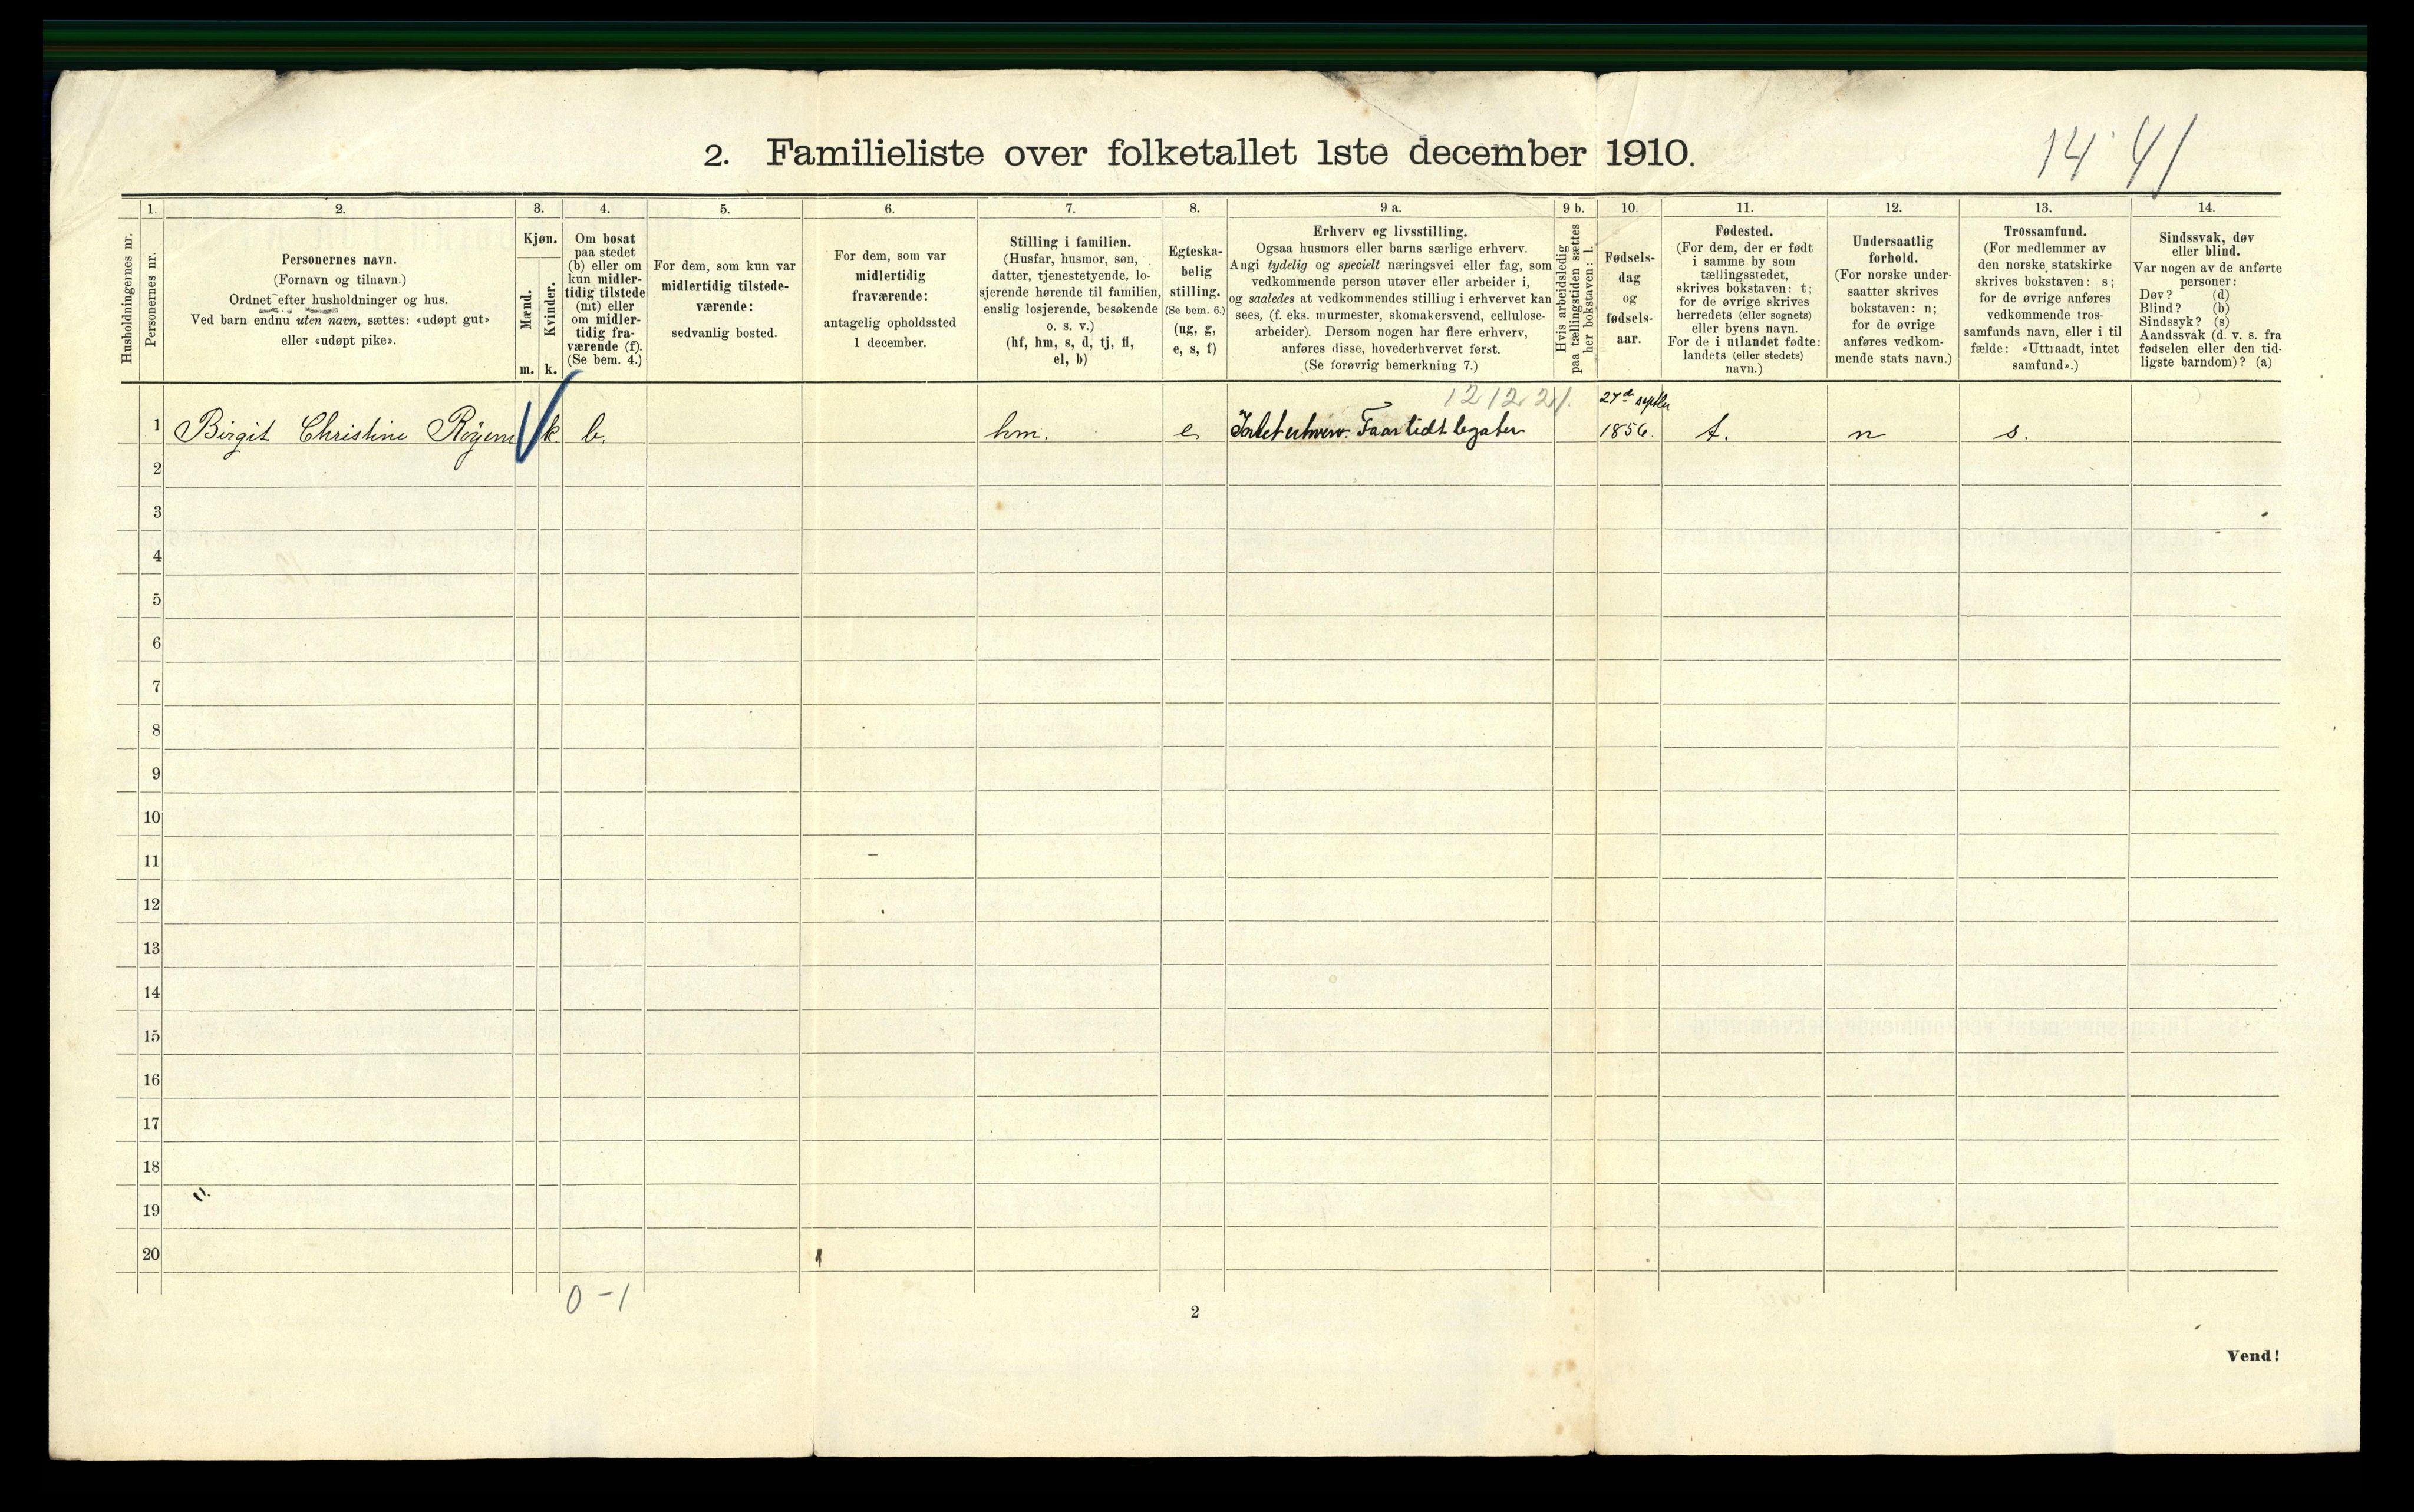 14 41
2. Familieliste over folketallet 1ste december 1910.
1. 2. 3. 4. 5. 6. 7. 8. 9 a. 9 b. 10. 11. 12. 13. 14.
Husholdningernes nr.
Personernes nr.
Personernes navn.
(Fornavn og tilnavn.)
Ordnet efter husholdninger og hus.
Ved barn endnu uten navn, sættes: «udøpt gut»
eller «udøpt pike».
Kjøn.
Mænd.
m.
Kvinder.
k.
Om bosat
paa stedet
(b) eller om
kun midler-
tidig tilstede
(mt) eller
om midler-
tidig fra-
værende (f).
(Se bem. 4.)
For dem, som kun var
midlertidig tilstede-
værende:
sedvanlig bosted.
For dem, som var
midlertidig
fraværende:
antagelig opholdssted
1 december.
Stilling i familien.
(Husfar, husmor, søn,
datter, tjenestetyende, lo-
sjerende hørende til familien,
enslig losjerende, besøkende
o. s. v.)
(hf, hm, s, d, tj, fl,
el, b)
Egteska-
belig
stilling.
(Se bem. 6.)
(ug, g,
e, s, f)
Erhverv og livsstilling.
Ogsaa husmors eller barns særlige erhverv.
Angi tydelig og specielt næringsvei eller fag, som
vedkommende person utøver eller arbeider i,
og saaledes at vedkommendes stilling i erhvervet kan
sees, (f. eks. murmester, skomakersvend, cellulose-
arbeider). Dersom nogen har flere erhverv,
anføres disse, hovederhvervet først.
(Se forøvrig bemerkning 7.)
Hvis arbeidsledig
paa tællingstiden sættes
her bokstaven: l.
Fødsels-
dag
og
fødsels-
aar.
Fødested.
(For dem, der er født
i samme by som
tællingsstedet,
skrives bokstaven: t;
for de øvrige skrives
herredets (eller sognets)
eller byens navn.
For de i utlandet fødte:
landets (eller stedets)
navn.)
Undersaatlig
forhold.
(For norske under-
saatter skrives
bokstaven: n;
for de øvrige
anføres vedkom-
mende stats navn.)
Trossamfund.
(For medlemmer av
den norske statskirke
skrives bokstaven: s;
for de øvrige anføres
vedkommende tros-
samfunds navn, eller i til
fælde: «Uttraadt, intet
samfund».)
Sindssvak, døv
eller blind.
Var nogen av de anførte
personer:
Døv? (d)
Blind? (b)
Sindssyk? (s)
Aandssvak (d. v. s. fra
fødselen eller den tid-
ligste barndom)? (a)
12 12 21.
27de septbr
1 Birgit Christine k b. hm. e Intet erhverv. Faar lidt legater 1856. t. n s.
2
3
4
5
6
7
8
9
10
11
12
13
14
15
16
17
18
19
20
0 - 1
2
Vend!